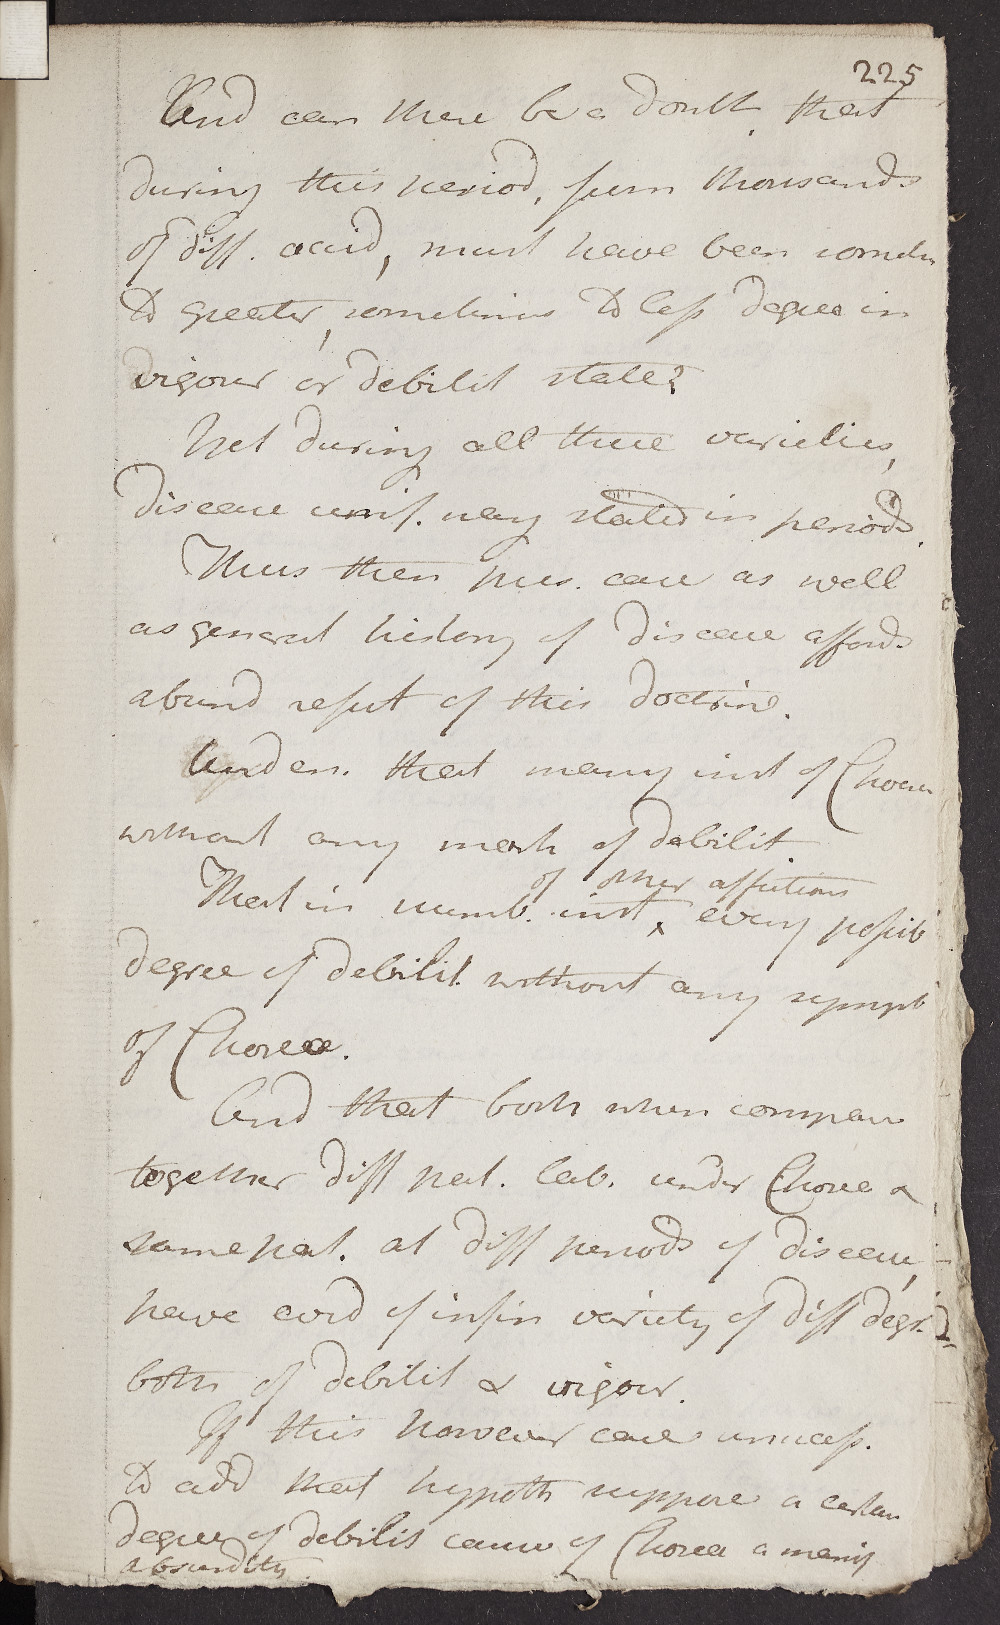 225
And can there be a doubt, that
during this period, from thousands
of diff. acid, must have been sometim
to greater, sometimes to less degree in
vigour or debilit state?
Yet during all these varieties,
disease unif. very stated in periods.
Thus then pres. case as well
as general history of disease affords
abund refut of this doctrine.
Unden. that many inst of Chorea
without any mark of debilit.
of other affections
That in numb. inst, every possib
degree of debilit. without any sympt
of Chorea.
And that both when compare
together diff pat. lab. under Chorea &
same pat. at diff periods of disease,
have evid of infin variety of diff degr.
both of debilit & vigour.
If this however case unnecess.
to add that hypoth suppose a certain
degree of debilit cause of Chorea a manif
absurdity.